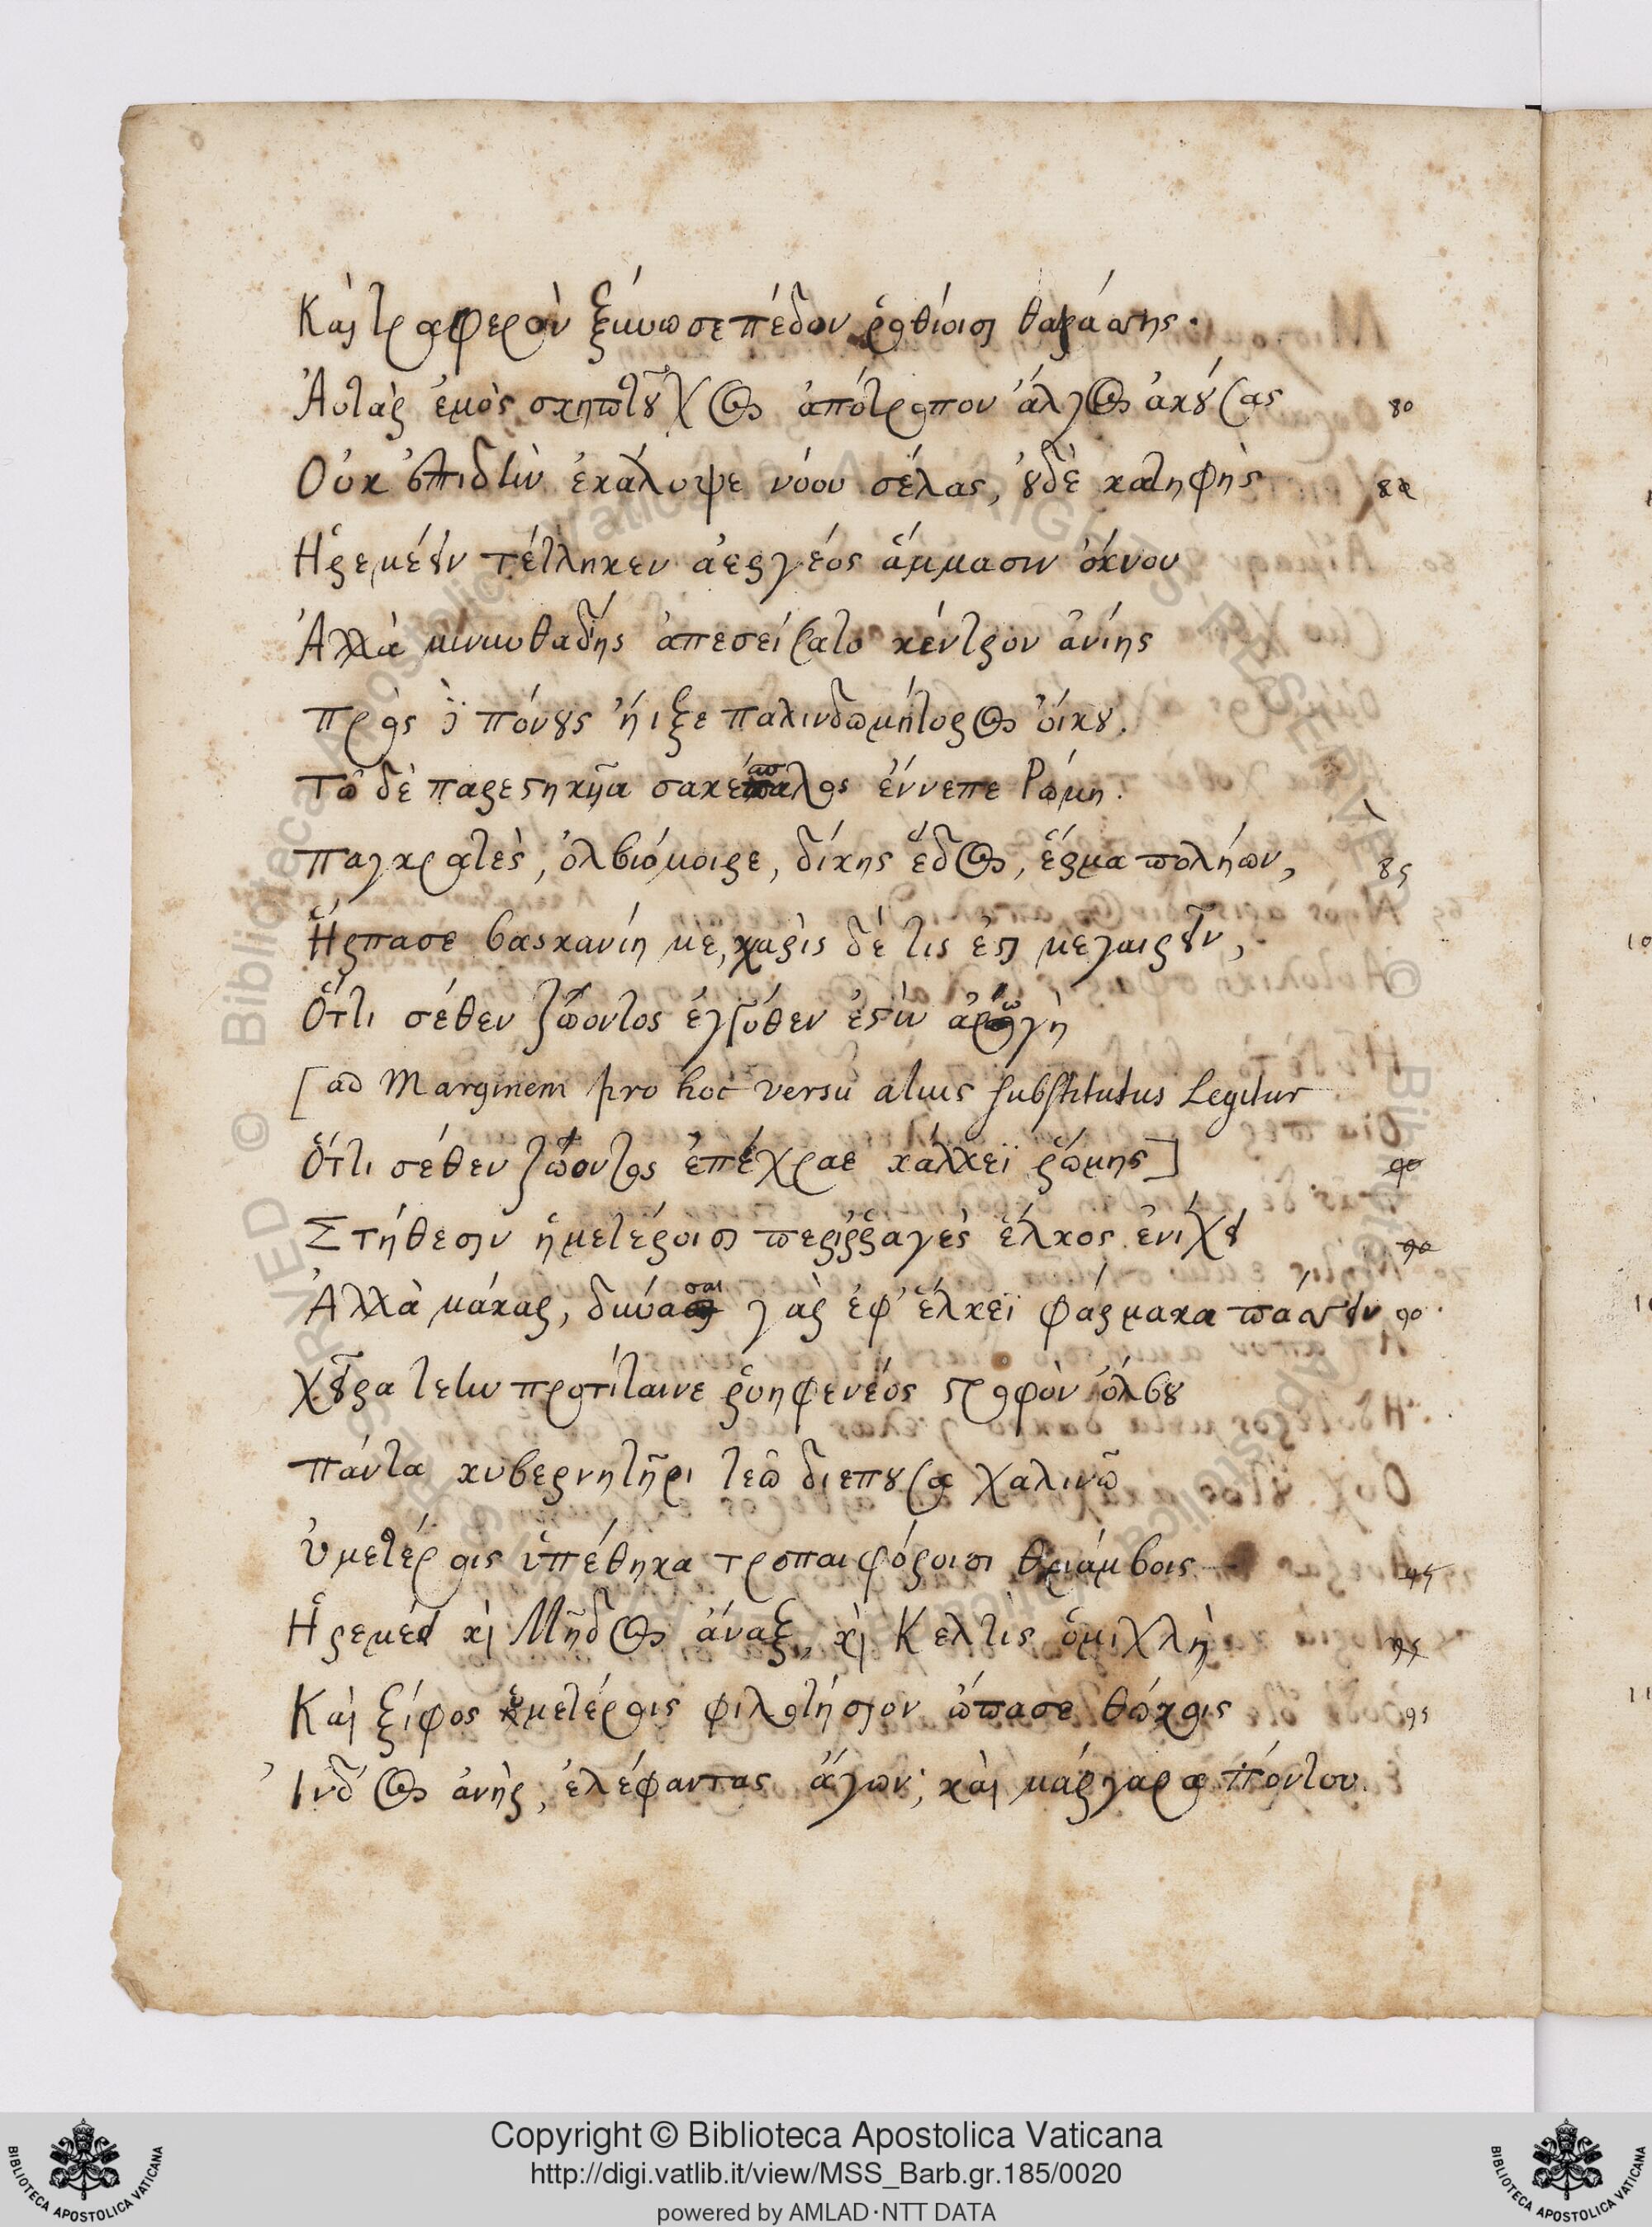 Καὶ τραφερὸν ξύνωσε πέδον ῥοθίοισι θαλάσσης.
Ἀυτὰρ ἐμὸς σκηπτοῦχος ἀπότροπον ἄλγος ἀκούσας 80
Οὐκ ἐλπιδίην ἐκάλυψε νόου σέλας, οὐδὲ κατηφὴς
Ἠρεμέειν τέτληκεν ἀεργέος ἅμμασιν ὄκνου
Ἀλλὰ μινυνθαδίης ἀπεσείσατο κέντρον ἀνίης
πρὸς πόνους ἤιξε παλινδωμήτορος οἴκου.
τῶ δὲ παρεστηκῆα σακέσπαλος ἔννεπε Ρώμη.
παγκρατὲς, ὀλβιόμοιρε, δίκης ἕδος, ἕρμα πολήων, 85
Ἥρπασε βασκανίη με, χάρις δέ τις ἐστὶ μεγαιρεῖν,
Ὅττι σέθεν ζώοντος ἐγγύθεν ἐστὶν ἀρωγὴ
[ad Marginem pro hoc versu alius substitutus Legitur
Ὅττι σέθεν ζώοντος ἐπέχραε κάλλεϊ ῥώμης]
Στήθεσιν ἡμετέροισι περιῤῥαγὲς ἕλκος ἐνιχεῖ
Ἀλλὰ μάκαρ, δύνασαι γὰρ ἐφ' ἕλκεϊ φάρμακα πάσσειν 90
χεῖρα τεὴν προτίταινε ῥυηφενέος τροφὸν ὄλβου
πάντα κυβερνητῆρι τεῶ διέπουσα χαλινῶ
ὑμετέροις ὑπέθηκα τροπαιφόροισι θριάμβοις
Ἠρεμέει καὶ Μῆδος ἄναξ, καὶ Κελτὶς ὁμιχλὴ
Καὶ ξίφος ὑμετέροις φιλοτήσιον ὤπασε θώκοις 95
Ἰνδὸς ἀνὴρ, ἐλέφαντας ἄγων, καὶ μάργαρα πόντου.
Copyright © Biblioteca Apostolica Vaticana
http://digi.vatlib.it/view/MSS_Barb.gr.185/0020
powered by AMLAD·NTT DATA